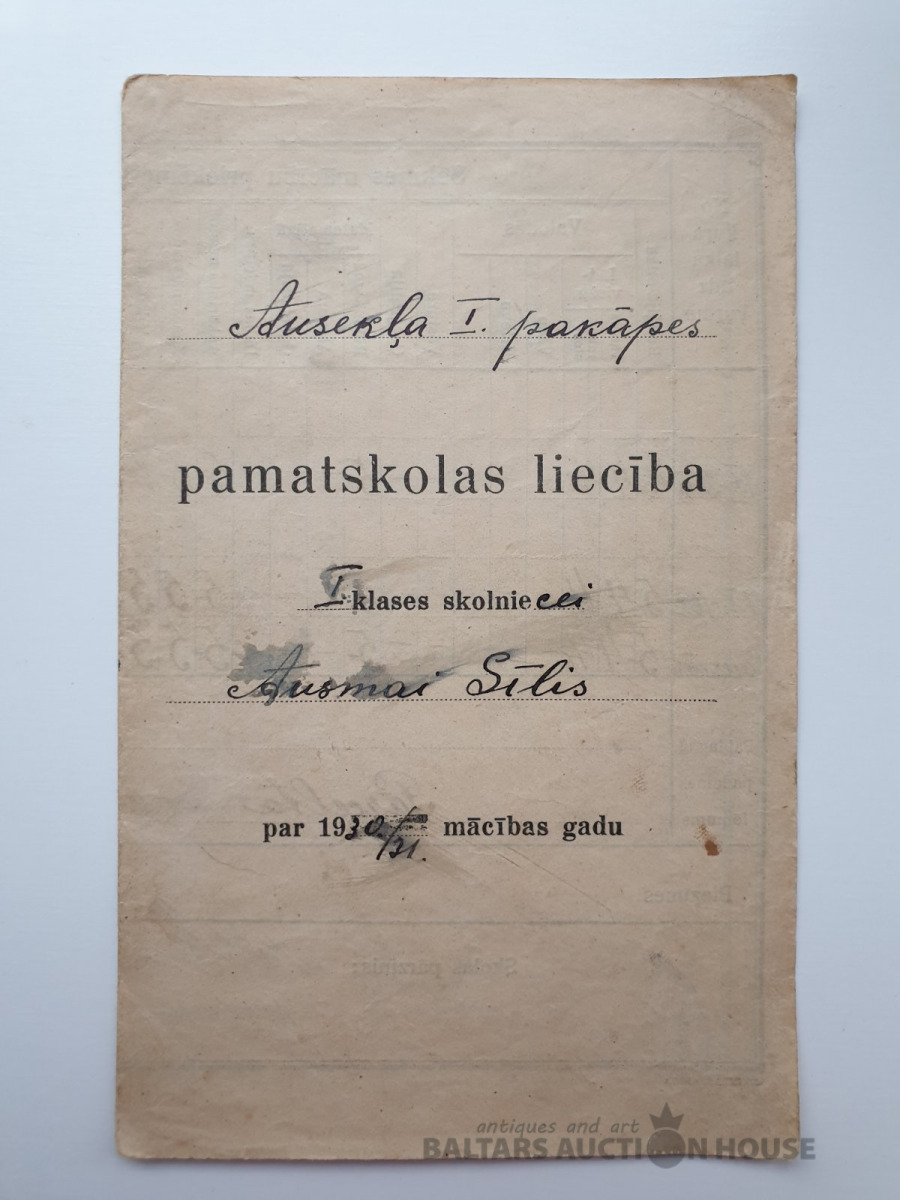 Ausekļa I. pakāpes
pamatskolas liecība
I klases skolniecei
Ausmai Sīlis
par 1930./31. mācības gadu
antiques and art
BALTARS AUCTION HOUSE